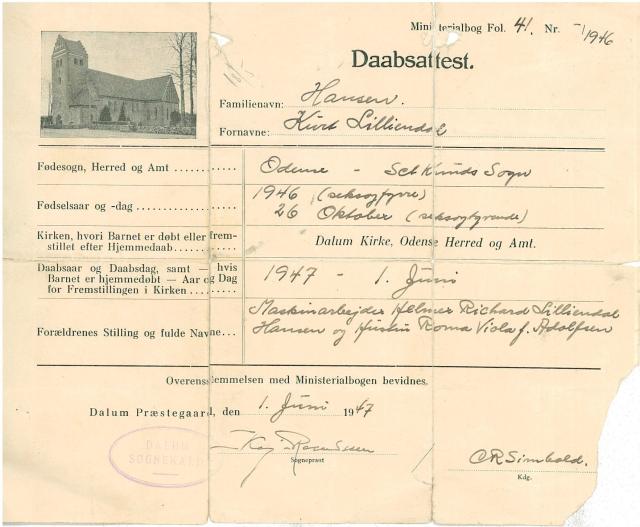 Ministerialbog Fol. 41. Nr. -/1946
Daabsattest.
Familienavn: Hansen.
Fornavne: Kurt Lilliendal
Fødesogn, Herred og Amt ............ Odense - Sct Knuds Sogn
Fødselsaar og -dag ................... 1946 (seksogfyrre)
26 Oktober (seksogtyvende)
Kirken, hvori Barnet er døbt eller frem-
stillet efter Hjemmedaab............ Dalum Kirke, Odense Herred og Amt.
Daabsaar og Daabsdag, samt — hvis
Barnet er hjemmedøbt — Aar og Dag
for Fremstillingen i Kirken.......... 1947 - 1. Juni
Maskinarbejder Helmer Richard Lilliendal
Forældrenes Stilling og fulde Navne... Hansen og Hustru Roma Viola f. Adolfsen
Overensstemmelsen med Ministerialbogen bevidnes.
Dalum Præstegaard, den 1. Juni 1947
DALUM
SOGNEKALD
Kaj Rasmussen
Sognepræst
Kdg.